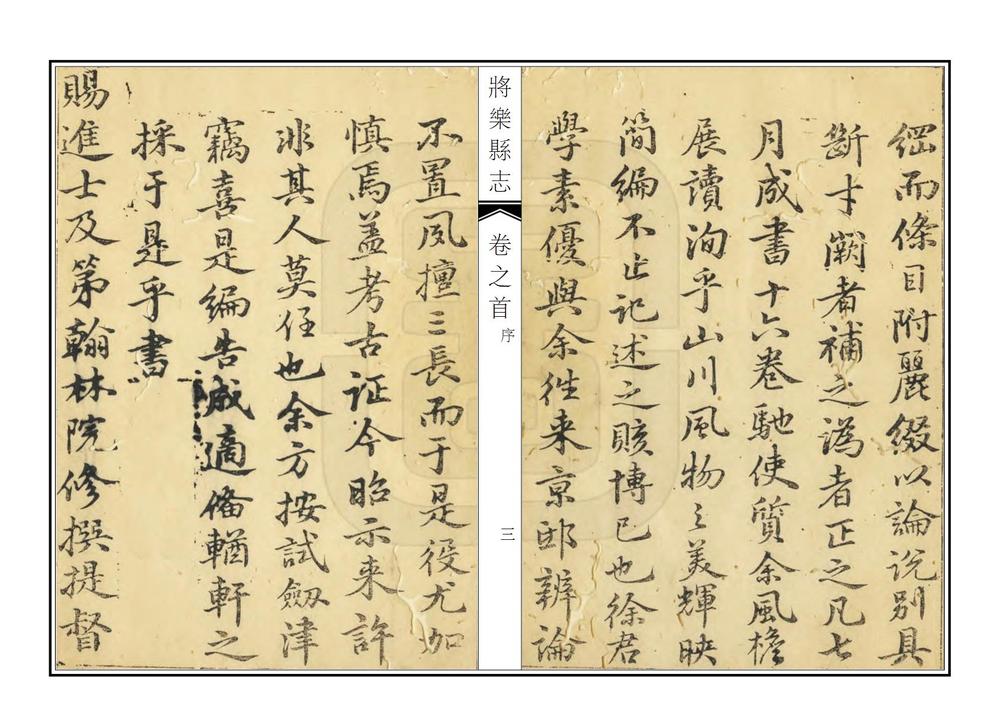 綱而條目附麗綴以論説别具
斷才闕者補之譌者正之凡七
月成書十六卷馳使質余風檐
展讀洵乎山川風物之美輝映
簡編不止記述之賅博已也徐君
學素優與余徃来京邸辨論
將樂縣志
卷之首
序
三
不置夙擅三長而于是役尤加
慎焉盖考古証今昭示来許
非其人莫任也余方按試劒津
竊喜是編告成適偹輶軒之
採于是乎書
賜進士及第翰林院修撰提督